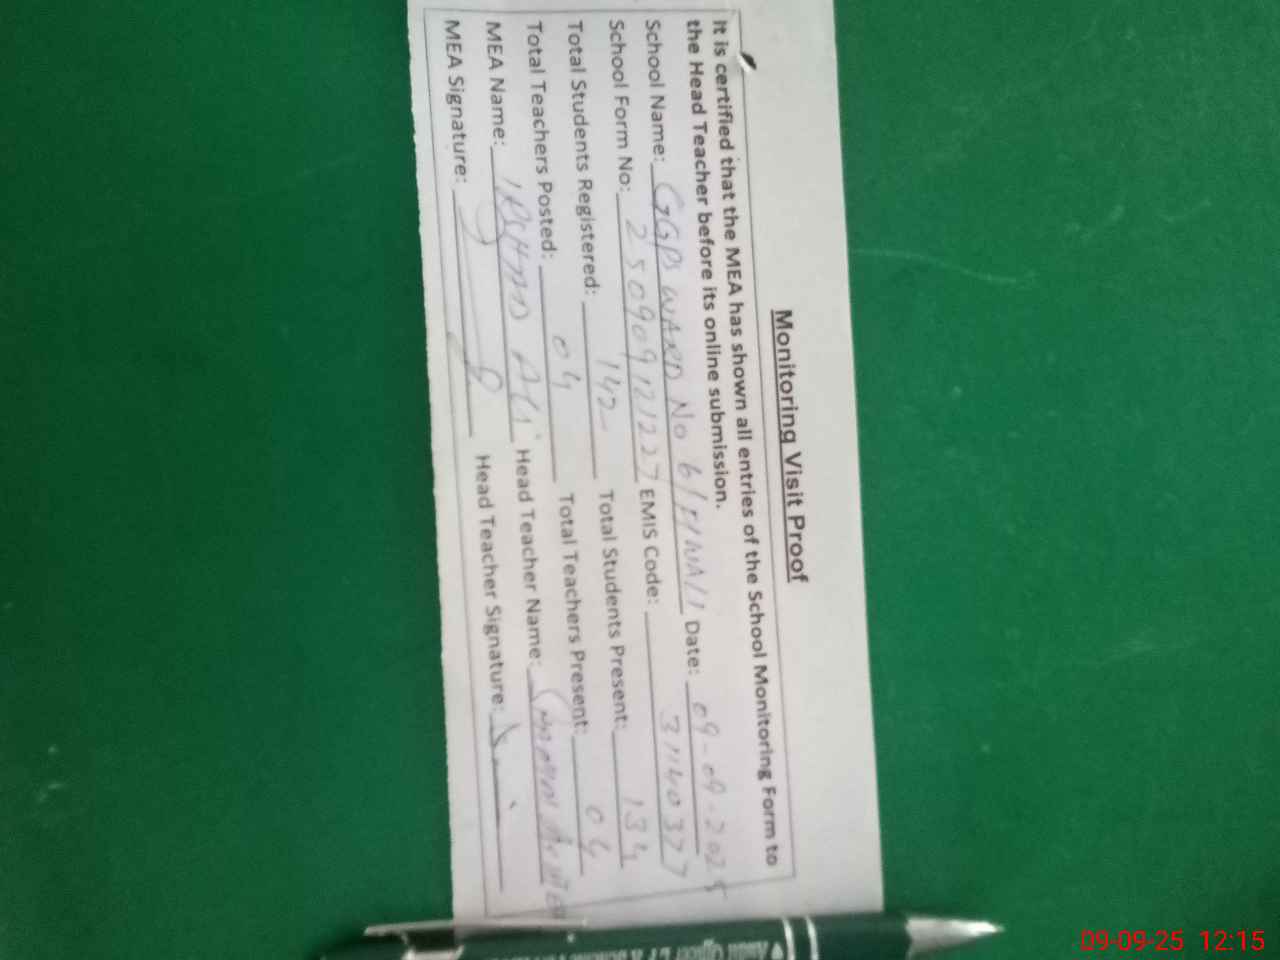 Monitoring Visit Proof
It is certified that the MEA has shown all entries of the School Monitoring Form to
the Head Teacher before its online submission.
School Name: GGPS WARD No 6 Date: 09-09-2025
School Form No: 250909121227 EMIS Code: 31140377
Total Students Registered: 142 Total Students Present: 134
Total Teachers Posted: 04 Total Teachers Present: 04
MEA Name: IRSHAD ALI Head Teacher Name:
MEA Signature: Head Teacher Signature:
09-09-25 12:15